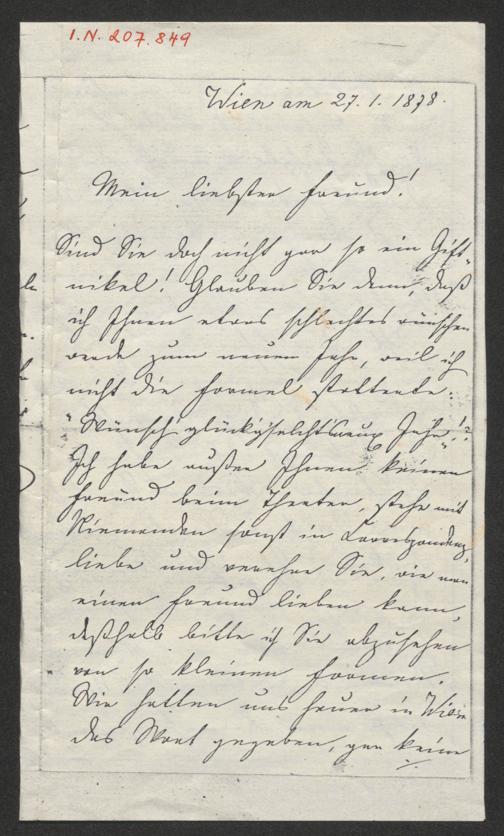 I.N. 207.849
Wien am 27.1.1878.
Mein liebster Freund!
Sind Sie doch nicht gar so ein Gift-
nikel! Glauben Sie denn, daß
ich Ihnen etwas schlechtes wünschen
werde zum neuen Jahr, weil ich
nicht die Formel stotterte:
"Wünsch' Jahr!?"
Ich habe außer Ihnen keinen
Freund beim Theater, stehe mit
Niemanden sonst in Correspondenz,
liebe und verehre Sie, wie man
einen Freund lieben kann,
deßhalb bitte ich Sie abzusehen
von so kleinen Formen.
Wir hatten uns heuer in Wien
das Wort gegeben, gar keine